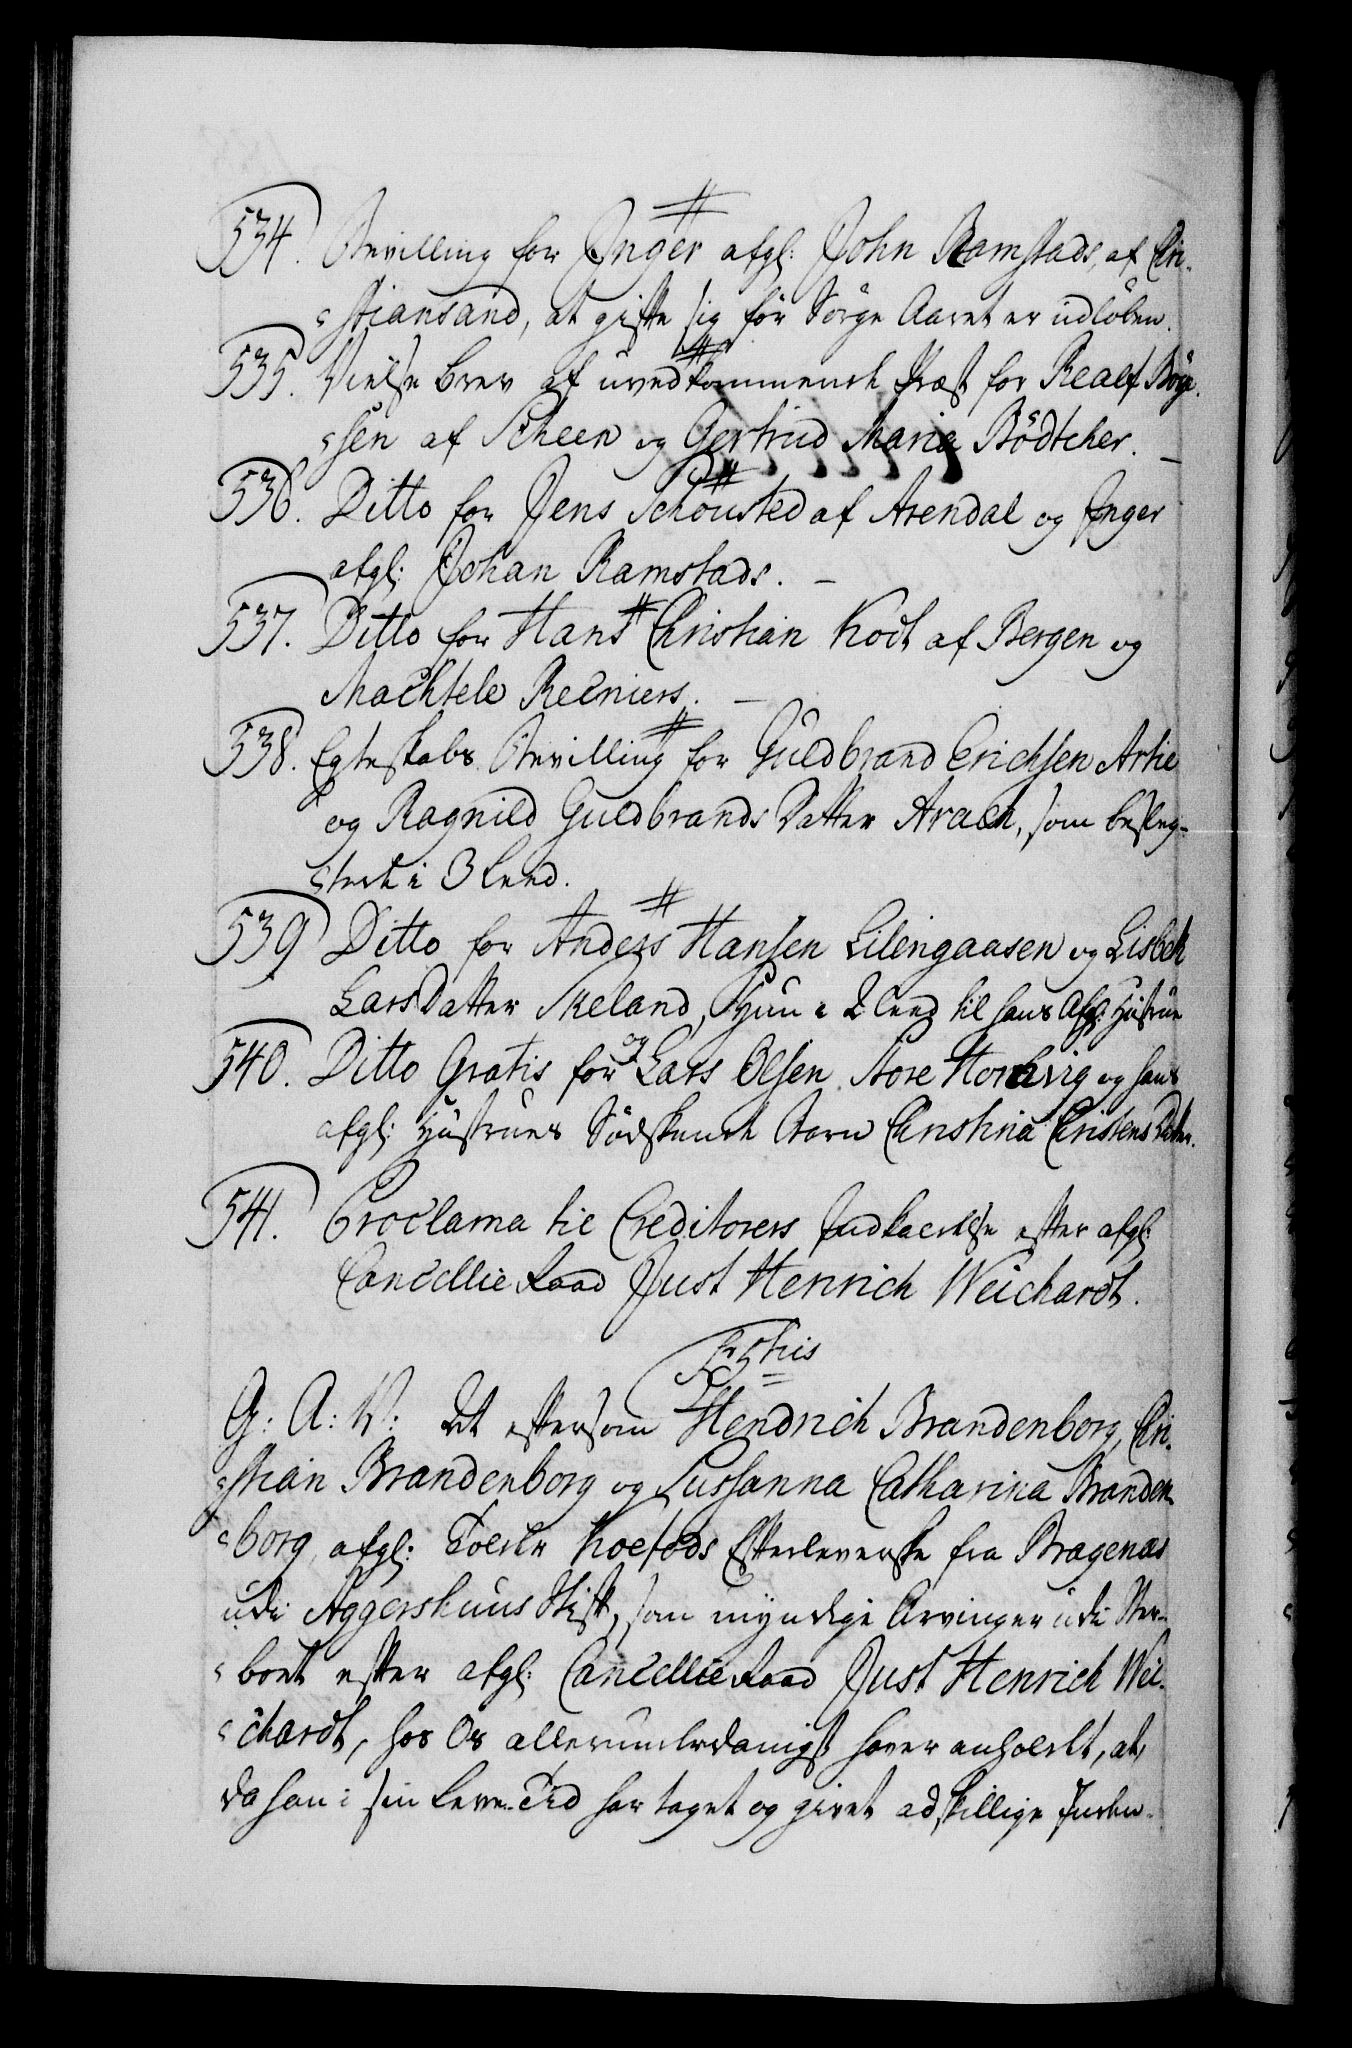 534. Bevilling for Inger afgl: John Ramstads, af Chri-
stiansand, at gifte sig før Sørge Aaret er udløben.
535. Vielse brev af uvedkommende Præst for Realf Böye-
sen af Scheen og Gertrud Maria Bödtcher. –
536. Ditto for Jens Schousted af Arendal og Inger
afgl: Johan Ramstads. –
537. Ditto for Hans Christian Kodt af Bergen og
Machtele Reiniers. –
538. Egteskabs Bevilling for Guldbrand Erichsen
og Ragnild Guldbrands Datter, som besleg-
tede i 3 Leed.
539 Ditto for Anders Hansen Lilengaasen og Lisbeth
Lars Datter Skeland, Hun i 2 Leed til hans Afgl: Hustrue
540. Ditto Gratis for og Lars Olsen Store og hans
afgl: Hustrues Sødskende Barn Christina Christens Datter.
541. Proclama til Creditorers Indkaldelse efter afgl:
Cancellie Raad Just Henrich Weichardt.
G: A: V: At eftersom Hendrich Brandenborg, Chri-
stian Brandenborg og Sussanna Catharina Branden-
borg, afgl: Tolder Koefods Efterleverske fra Bragenæs
udi Aggershuus Stift, som myndige Arvinger udi Ster-
boet efter afgl: Cancellie Raad Just Henrich Wei-
chardt, hos Os allerunderdanigst haver anholdt, at,
da han i sin Leve-Tid har taget og givet adskillige